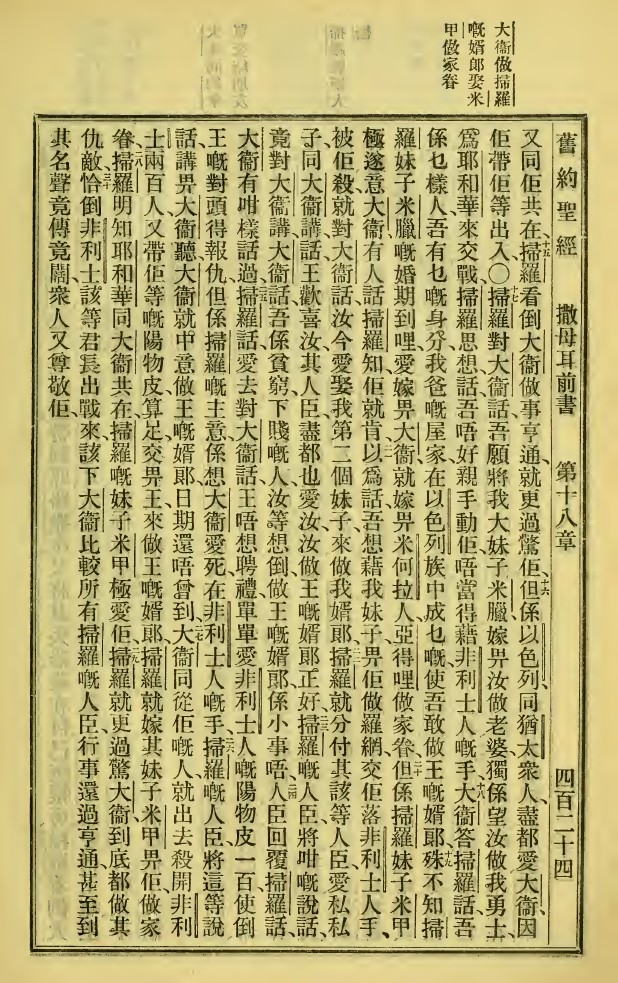 大衞做掃羅
嘅婿郎娶米
甲做家眷
舊約聖經 撒母耳前書 第十八章 四百二十四
又同佢共在掃羅看倒大衞做事亨通就更過驚佢但係以色列同猶太衆人盡都愛大衞因
佢帶佢等出入〇掃羅對大衞話吾願將我大妹子米臘嫁畀汝做老婆獨係望汝做我勇士
爲耶和華來交戰掃羅思想話吾唔好親手動佢唔當得藉非利士人嘅手大衞答掃羅話吾
係乜樣人吾有乜嘅身分我爸嘅屋家在以色列族中成乜嘅使吾敢做王嘅婿郎殊不知掃
羅妹子米臘嘅婚期到哩愛嫁畀大衞就嫁畀米何拉人亞得哩做家眷但係掃羅妹子米甲
極遂意大衞有人話掃羅知佢就肯以爲話吾想藉我妹子畀佢做羅網交佢落非利士人手
被佢殺就對大衞話汝今愛娶我第二個妹子來做我婿郎掃羅就分付其該等人臣愛私私
子同大衞講話王歡喜汝其人臣盡都也愛汝汝做王嘅婿郎正好掃羅嘅人臣將咁嘅說話
竟對大衞講大衞話吾係貧窮下賤嘅人汝等想倒做王嘅婿郎係小事唔人臣回覆掃羅話
大衞有咁樣話過掃羅話愛去對大衞話王唔想聘禮單單愛非利士人嘅陽物皮一百使倒
王嘅對頭得報仇但係掃羅嘅主意係想大衞愛死在非利士人嘅手掃羅嘅人臣將這等說
話講畀大衞聽大衞就中意做王嘅婿郎日期還唔曾到大衞同從佢嘅人就出去殺開非利
士兩百人又帶佢等嘅陽物皮算足交畀王來做王嘅婿郎掃羅就嫁其妹子米甲畀佢做家
眷掃羅明知耶和華同大衞共在掃羅嘅妹子米甲極愛佢掃羅就更過驚大衞到底都做其
仇敵恰倒非利士該等君長出戰來該下大衞比較所有掃羅嘅人臣行事還過亨通甚至到
其名聲竟傳竟闊衆人又尊敬佢